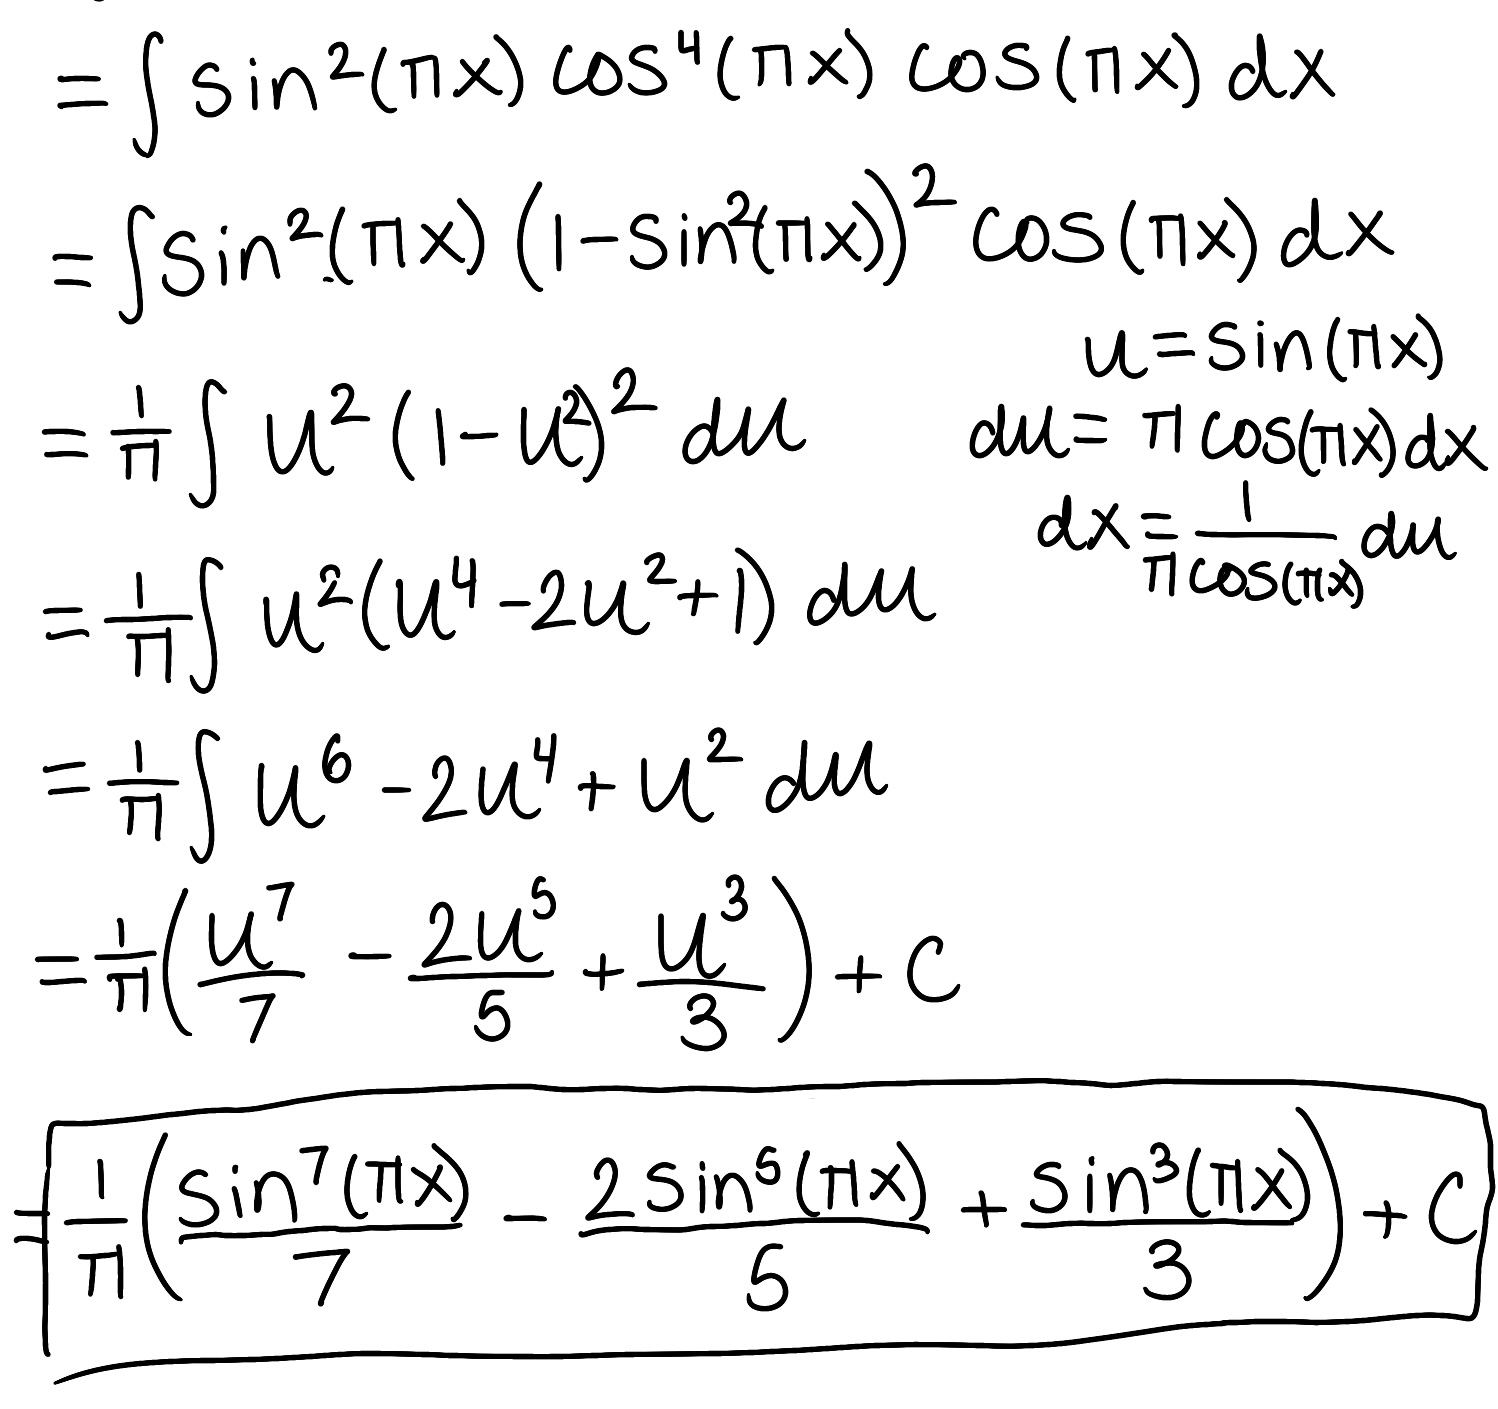 = ∫ sin²(πx) cos⁴(πx) cos(πx) dx
= ∫ sin²(πx) (1-sin²(πx))² cos(πx) dx
u = sin(πx)
= 1/π ∫ u² (1-u²)² du
du = π cos(πx) dx
dx = 1/(π cos(πx)) du
= 1/π ∫ u²(u⁴-2u²+1) du
= 1/π ∫ u⁶ - 2u⁴ + u² du
= 1/π (u⁷/7 - 2u⁵/5 + u³/3) + C
= 1/π (sin⁷(πx)/7 - 2sin⁵(πx)/5 + sin³(πx)/3) + C